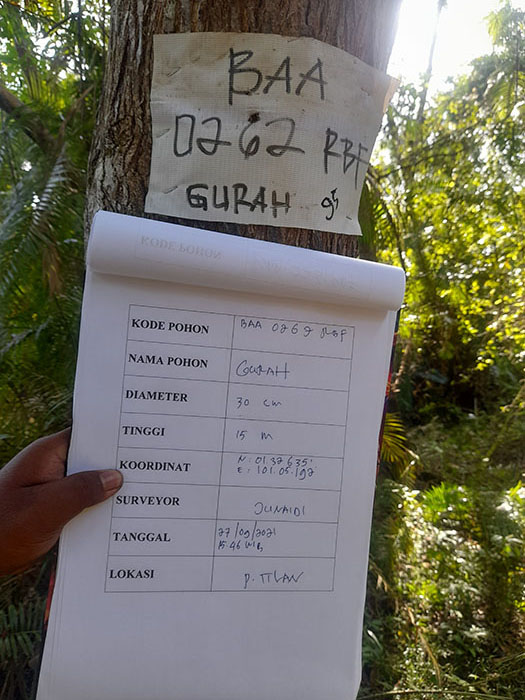 BAA
0262 RBF
GURAH
KODE POHON
KODE POHON BAA 0262 RBF
NAMA POHON GURAH
DIAMETER 30 cm
TINGGI 15 m
KOORDINAT N: 01.37 635'
E: 101.05.192
SURVEYOR JUNAIDI
TANGGAL 27/09/2021
15.46 WIB
LOKASI